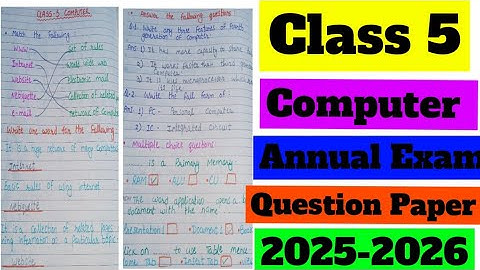 CLASS-5 COMPUTER
Match the following
WWW
set of rules
Intranet
world wide web
Website
electronic mail
Netiquette
collection of related
e-mail
network of Computer
Write one word for the following
It is a type network of many Computer
Internet
basic rules of using internet
Netiquette
It is a collection of related pages
information on a particular topic
Website
Answer the following questions
Q.1 Write any three features of fourth
generation of computer
Ans 1) It has more capacity to store
2) It works faster than third
Computer
3) It is use microprocessor
Q-2 Write the full form of
Ans 1) PC - Personal Computer
2) IC - Integrated Circuit
Multiple choice questions
is a Primary Memory
RAM ALU CU
The word application opens a
document with the name
Presentation 1 Document 1 Book
Click on to use Table menu
Home Tab Insert Tab
Class 5
Computer
Annual Exam
Question Paper
2025-2026